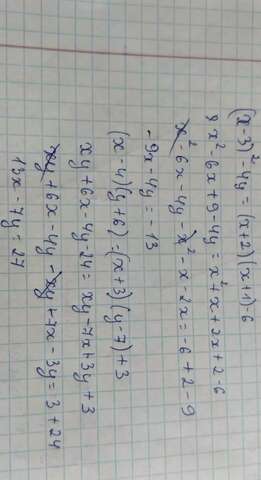 (x-3)²-4y=(x+2)(x+1)-6
9x²-6x+9-4y=x²+x+2x+2-6
x²-6x-4y-x²-x-2x=-6+2-9
-9x-4y=-13
(x-4)(y+6)=(x+3)(y-7)+3
xy+6x-4y-24=xy-7x+3y+3
xy+6x-4y-xy+7x-3y=3+24
13x-7y=27